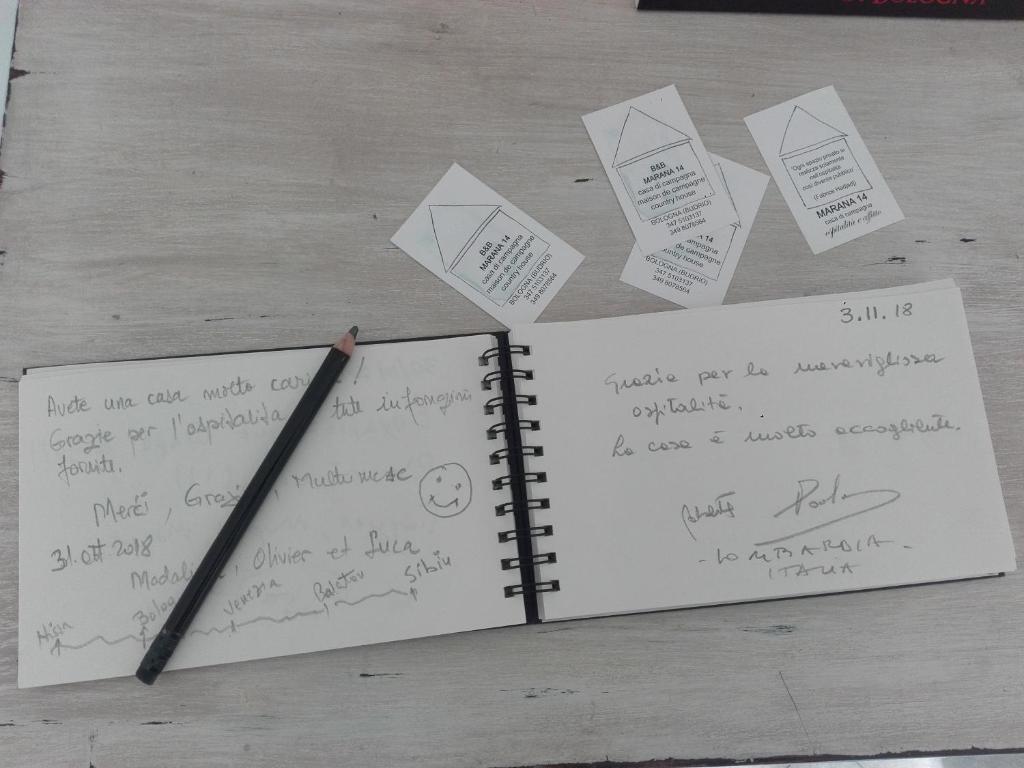 BOLOGNA
B&B
MARANA 14
casa di campagna
maison de campagne
country house
BOLOGNA (BUDRIO)
347 5103137
349 8078564
B&B
MARANA 14
casa di campagna
maison de campagne
country house
BOLOGNA (BUDRIO)
347 5103137
349 8078564
14
campagna
de campagne
country house
BOLOGNA (BUDRIO)
347 5103137
349 8078564
"Ogni spazio privato si
realizza solamente
nell'ospitalità
così diviene pubblico"
(Fabrice Hadjadj)
MARANA 14
casa di campagna
ospitalità e affitto
Avete una casa molto !
Grazie per l'ospitalita tute
fornite.
Merci, , Multumesc
31.ott 2018
, Olivier et Luca
Sibiu
3.11.18
Grazie per la meravigliosa
ospitalità.
La casa è molto accogliente.
- LOMBARDIA -
ITALIA